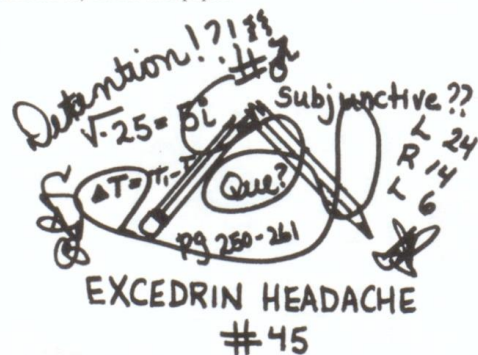 Detantion!?!
#
√-25 = 5i
Subjunctive??
L 24
R 14
L 6
ΔT=
Que?
pg 250-261
EXCEDRIN HEADACHE
#45